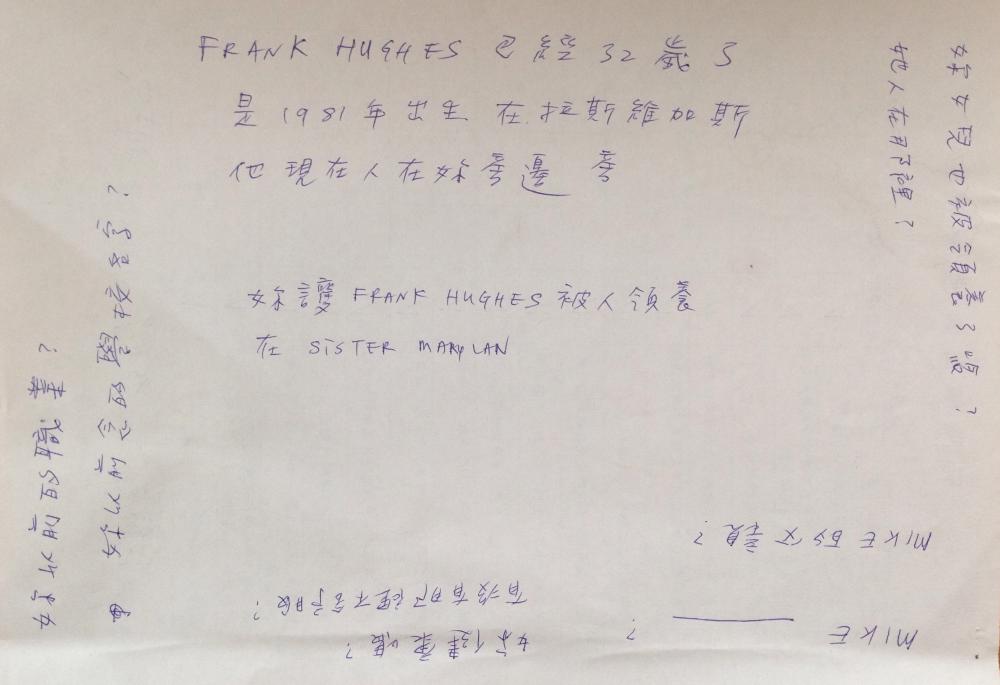 FRANK HUGHES 已經 32 歲了
是 1981 年出生 在拉斯維加斯
他現在人在妳旁邊
妳讓 FRANK HUGHES 被人領養
在 SISTER MARYLAN
妳女兒也被領養了嗎？
她人在那裡？
妳以前念的學校名字？
妳以前的職業？
MIKE 的父親？
MIKE ______ ？
妳健康嗎？
有沒有那裡不舒服？